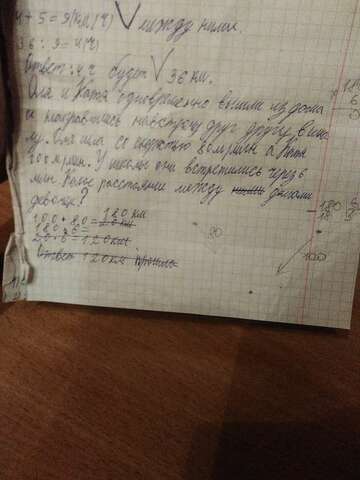 4 + 5 = 9 (км/ч) между ними.
36 : 9 = 4 (ч)
Ответ: 4 ч будет 36 км.
Оля и Катя одновременно вышли из дома
и направились навстречу друг другу в шко
лу. Оля шла со скоростью 80м/мин а Катя
100м/мин. У школы они встретились через 6
мин. Какое расстояние между домами
девочек?
100 + 80 = 180 км
180 : 6 =
20 · 6 = 120 км
Ответ 120 км прошли
180
6
0
90
180
100